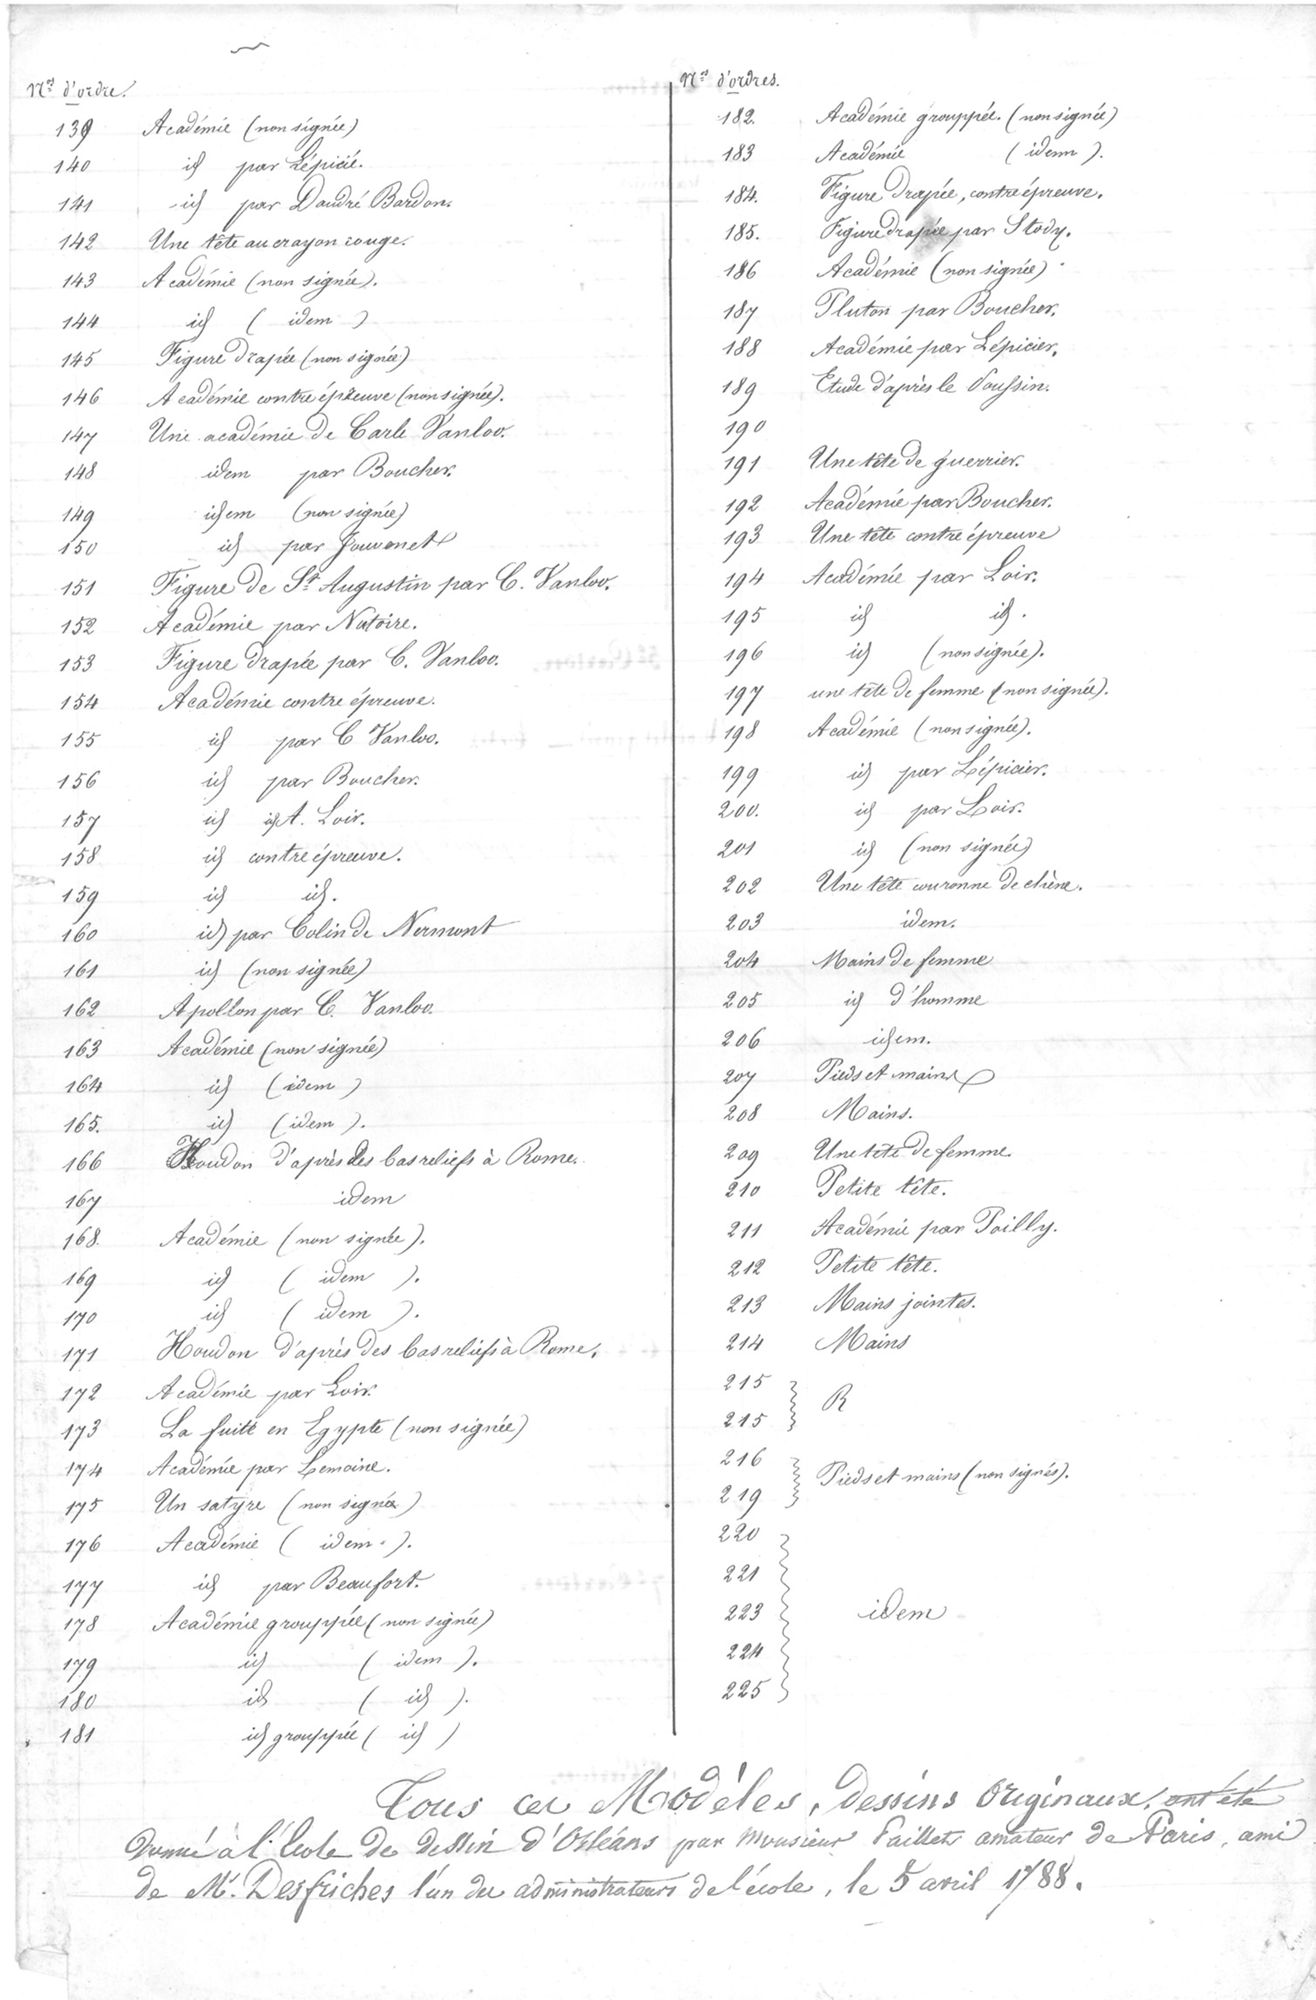 Nos d'ordre.
139 Académie (non signée)
140 id par Lépicié.
141 id par Dandré Bardon.
142 Une tête au crayon rouge.
143 Académie (non signée).
144 id ( idem )
145 Figure drapée (non signée)
146 Académie contre épreuve (non signée).
147 Une académie de Carle Vanloo.
148 idem par Boucher.
149 idem (non signée)
150 id par Jouvenet
151 Figure de St Augustin par C. Vanloo.
152 Académie par Natoire.
153 Figure drapée par C. Vanloo.
154 Académie contre épreuve.
155 id par C Vanloo.
156 id par Boucher.
157 id id A. Loir.
158 id contre épreuve.
159 id id.
160 id par Colin de Nermont
161 id (non signée)
162 Apollon par C. Vanloo.
163 Académie (non signée)
164 id (idem)
165. id (idem).
166 Houdon d'après des bas reliefs à Rome.
167 idem
168. Académie (non signée).
169 id ( idem ).
170 id ( idem ).
171 Houdon d'après des bas reliefs à Rome.
172 Académie par Loir.
173 La fuite en Egypte (non signée)
174 Académie par Lemoine.
175 Un satyre (non signée)
176 Académie ( idem. ).
177 id par Beaufort.
178 Académie grouppée (non signée)
179 id ( idem ).
180 id ( id ).
181 id grouppée ( id )
Nos d'ordres.
182. Académie grouppée. (non signée)
183 Académie ( idem ).
184. Figure drapée, contre épreuve.
185. Figure drapée par Stody.
186 Académie (non signée)
187 Pluton par Boucher.
188 Académie par Lépicier.
189 Etude d'après le Poussin.
190
191 Une tête de guerrier.
192 Académie par Boucher.
193 Une tête contre épreuve
194 Académie par Loir.
195 id id.
196 id (non signée).
197 une tête de femme (non signée).
198 Académie (non signée).
199 id par Lépicier.
200. id par Loir.
201 id (non signée)
202 Une tête couronne de chêne.
203 idem.
204 Mains de femme
205 id d'homme
206 idem.
207 Pieds et mains
208 Mains.
209 Une tête de femme
210 Petite tête.
211 Académie par Poilly.
212 Petite tête.
213 Mains jointes.
214 Mains
215
R
215
216
Pieds et mains (non signés).
219
220
221
223 idem
224
225
Tous ces Modèles, dessins originaux, ont été
donné à l'Ecole de dessin d'Orléans par Monsieur Paillet amateur de Paris, ami
de Mr. Desfriches l'un des administrateurs de l'école, le 5 avril 1788.